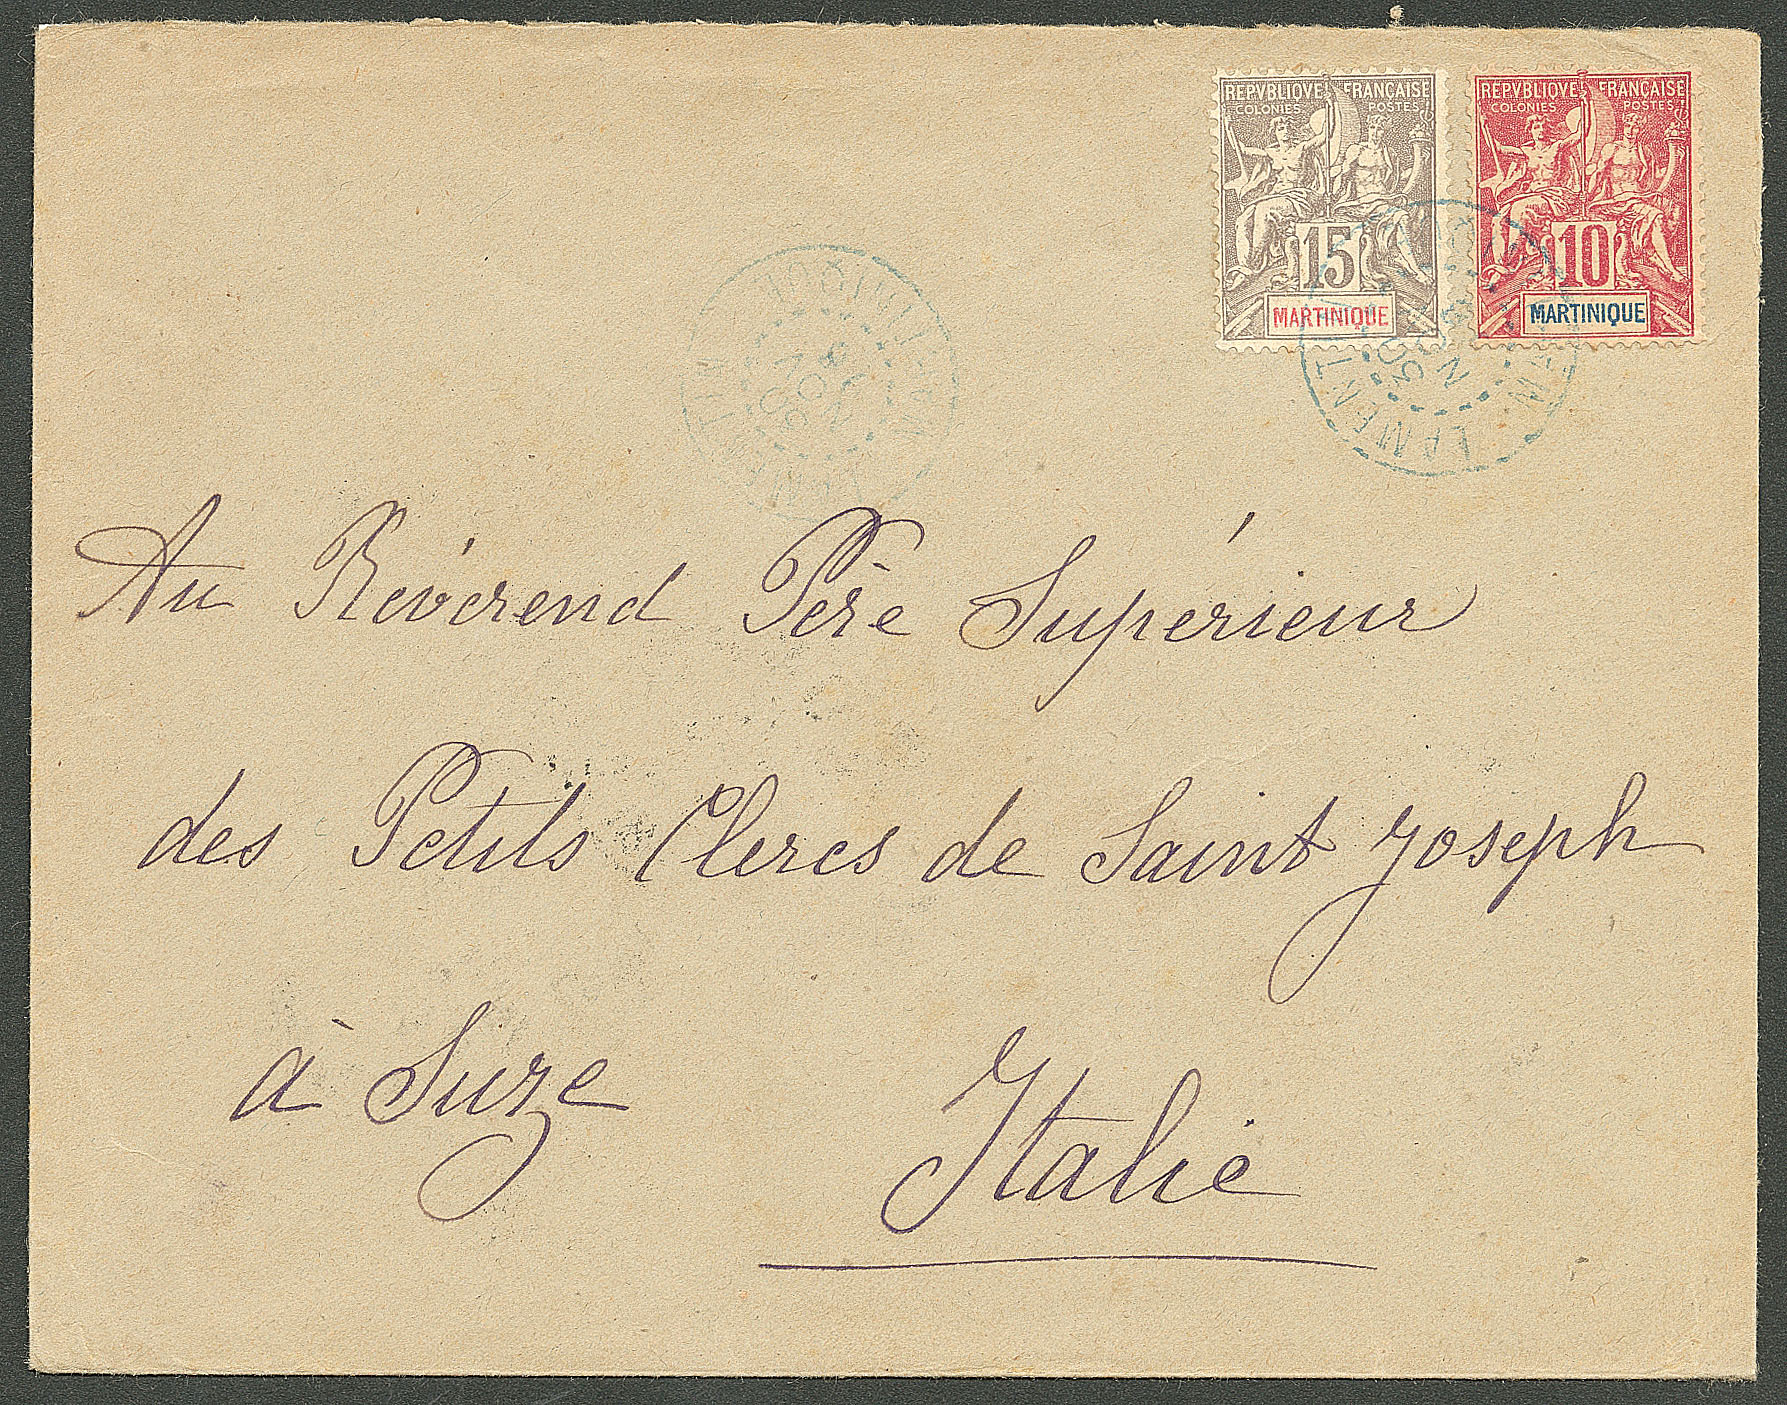 REPVBLIQVE FRANÇAISE
COLONIES POSTES
15
MARTINIQUE
REPVBLIQVE FRANÇAISE
COLONIES POSTES
10
MARTINIQUE
LAMENTIN
Au Révérend Père Supérieur
des Petits Clercs de Saint Joseph
à Suze
Italie